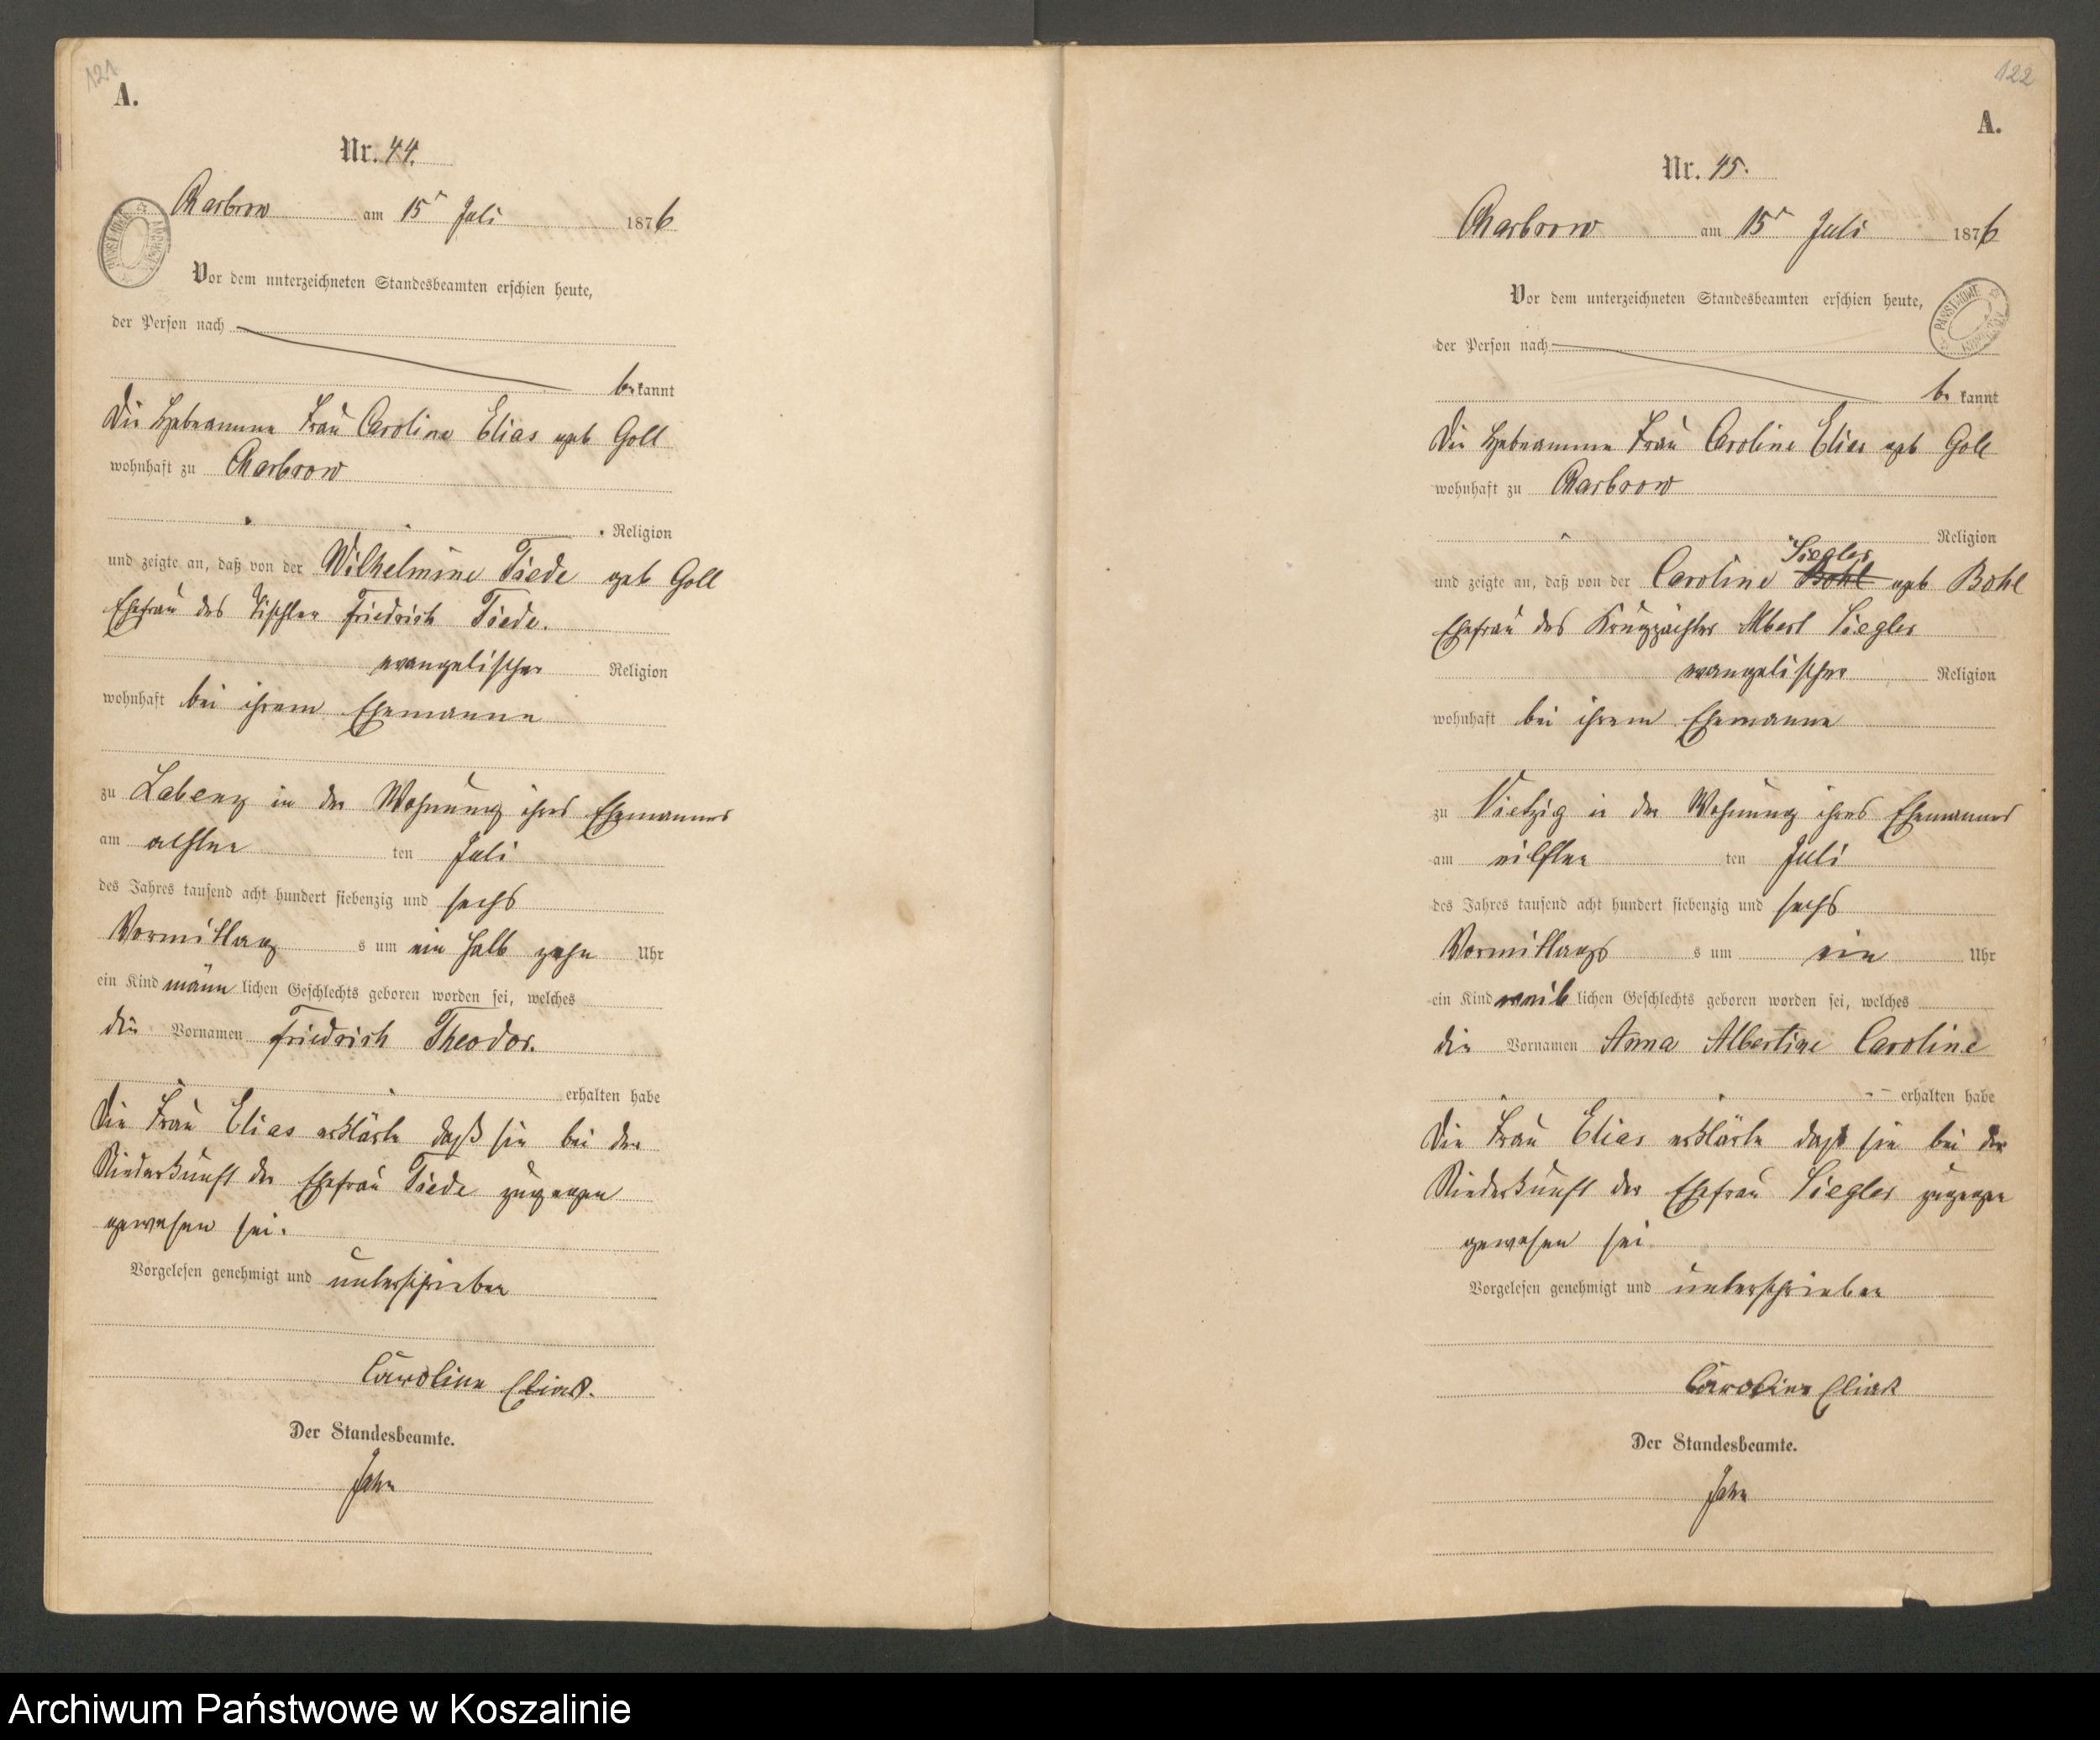 121
A.
Nr. 44.
Charbrow am 15n Juli 1876
Vor dem unterzeichneten Standesbeamten erschien heute,
der Person nach
bekannt
Die Hebeamme Frau Caroline Elias geb Goll
wohnhaft zu Charbrow
Religion
und zeigte an, daß von der Wilhelmine Tiede geb Goll
Ehefrau des Tischler Friedrich Tiede.
evangelischer Religion
wohnhaft bei ihrem Ehemanne
zu Labenz in der Wohnung ihres Ehemannes
am achten ten Juli
des Jahres tausend acht hundert siebenzig und sechs
Vormittag s um ein halb zehn Uhr
ein Kind männ lichen Geschlechts geboren worden sei, welches
die Vornamen Friedrich Theodor.
erhalten habe
Die Frau Elias erklärte daß sie bei der
Niederkunft der Ehefrau Tiede zugegen
gewesen sei.
Vorgelesen genehmigt und unterschrieben
Caroline Elias.
Der Standesbeamte.
Jahn
122
A.
Nr. 45.
Charbrow am 15n Juli 1876
Vor dem unterzeichneten Standesbeamten erschien heute,
der Person nach
be kannt
Die Hebeamme Frau Caroline Elias geb Goll
wohnhaft zu Charbrow
Religion
Siegler
und zeigte an, daß von der Caroline Bohl geb Bohl
Ehefrau des Krugpächter Albert Siegler
evangelischer Religion
wohnhaft bei ihrem Ehemanne
zu Vietzig in der Wohnung ihres Ehemannes
am eilften ten Juli
des Jahres tausend acht hundert siebenzig und sechs
Vormittags s um ein Uhr
ein Kind weib lichen Geschlechts geboren worden sei, welches
die Vornamen Anna Albertine Caroline
erhalten habe
Die Frau Elias erklärte daß sie bei der
Niederkunft der Ehefrau Siegler zugegen
gewesen sei
Vorgelesen genehmigt und unterschrieben
Caroline Elias
Der Standesbeamte.
Jahn
Archiwum Państwowe w Koszalinie